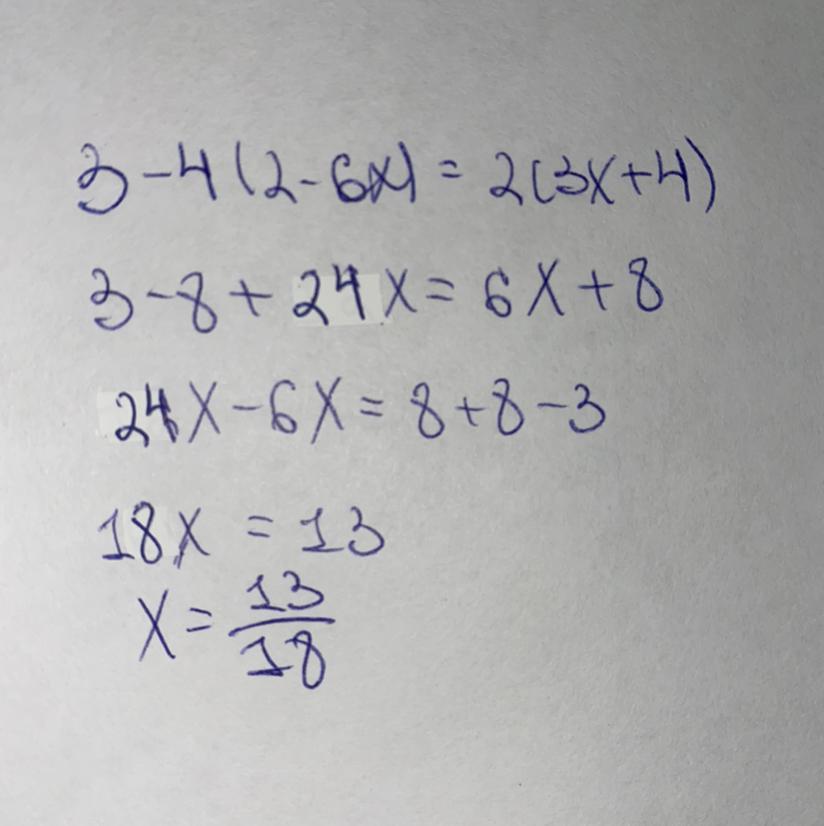 3-4(2-6x)=2(3x+4)
3-8+24x=6x+8
24x-6x=8+8-3
18x=13
x=13/18